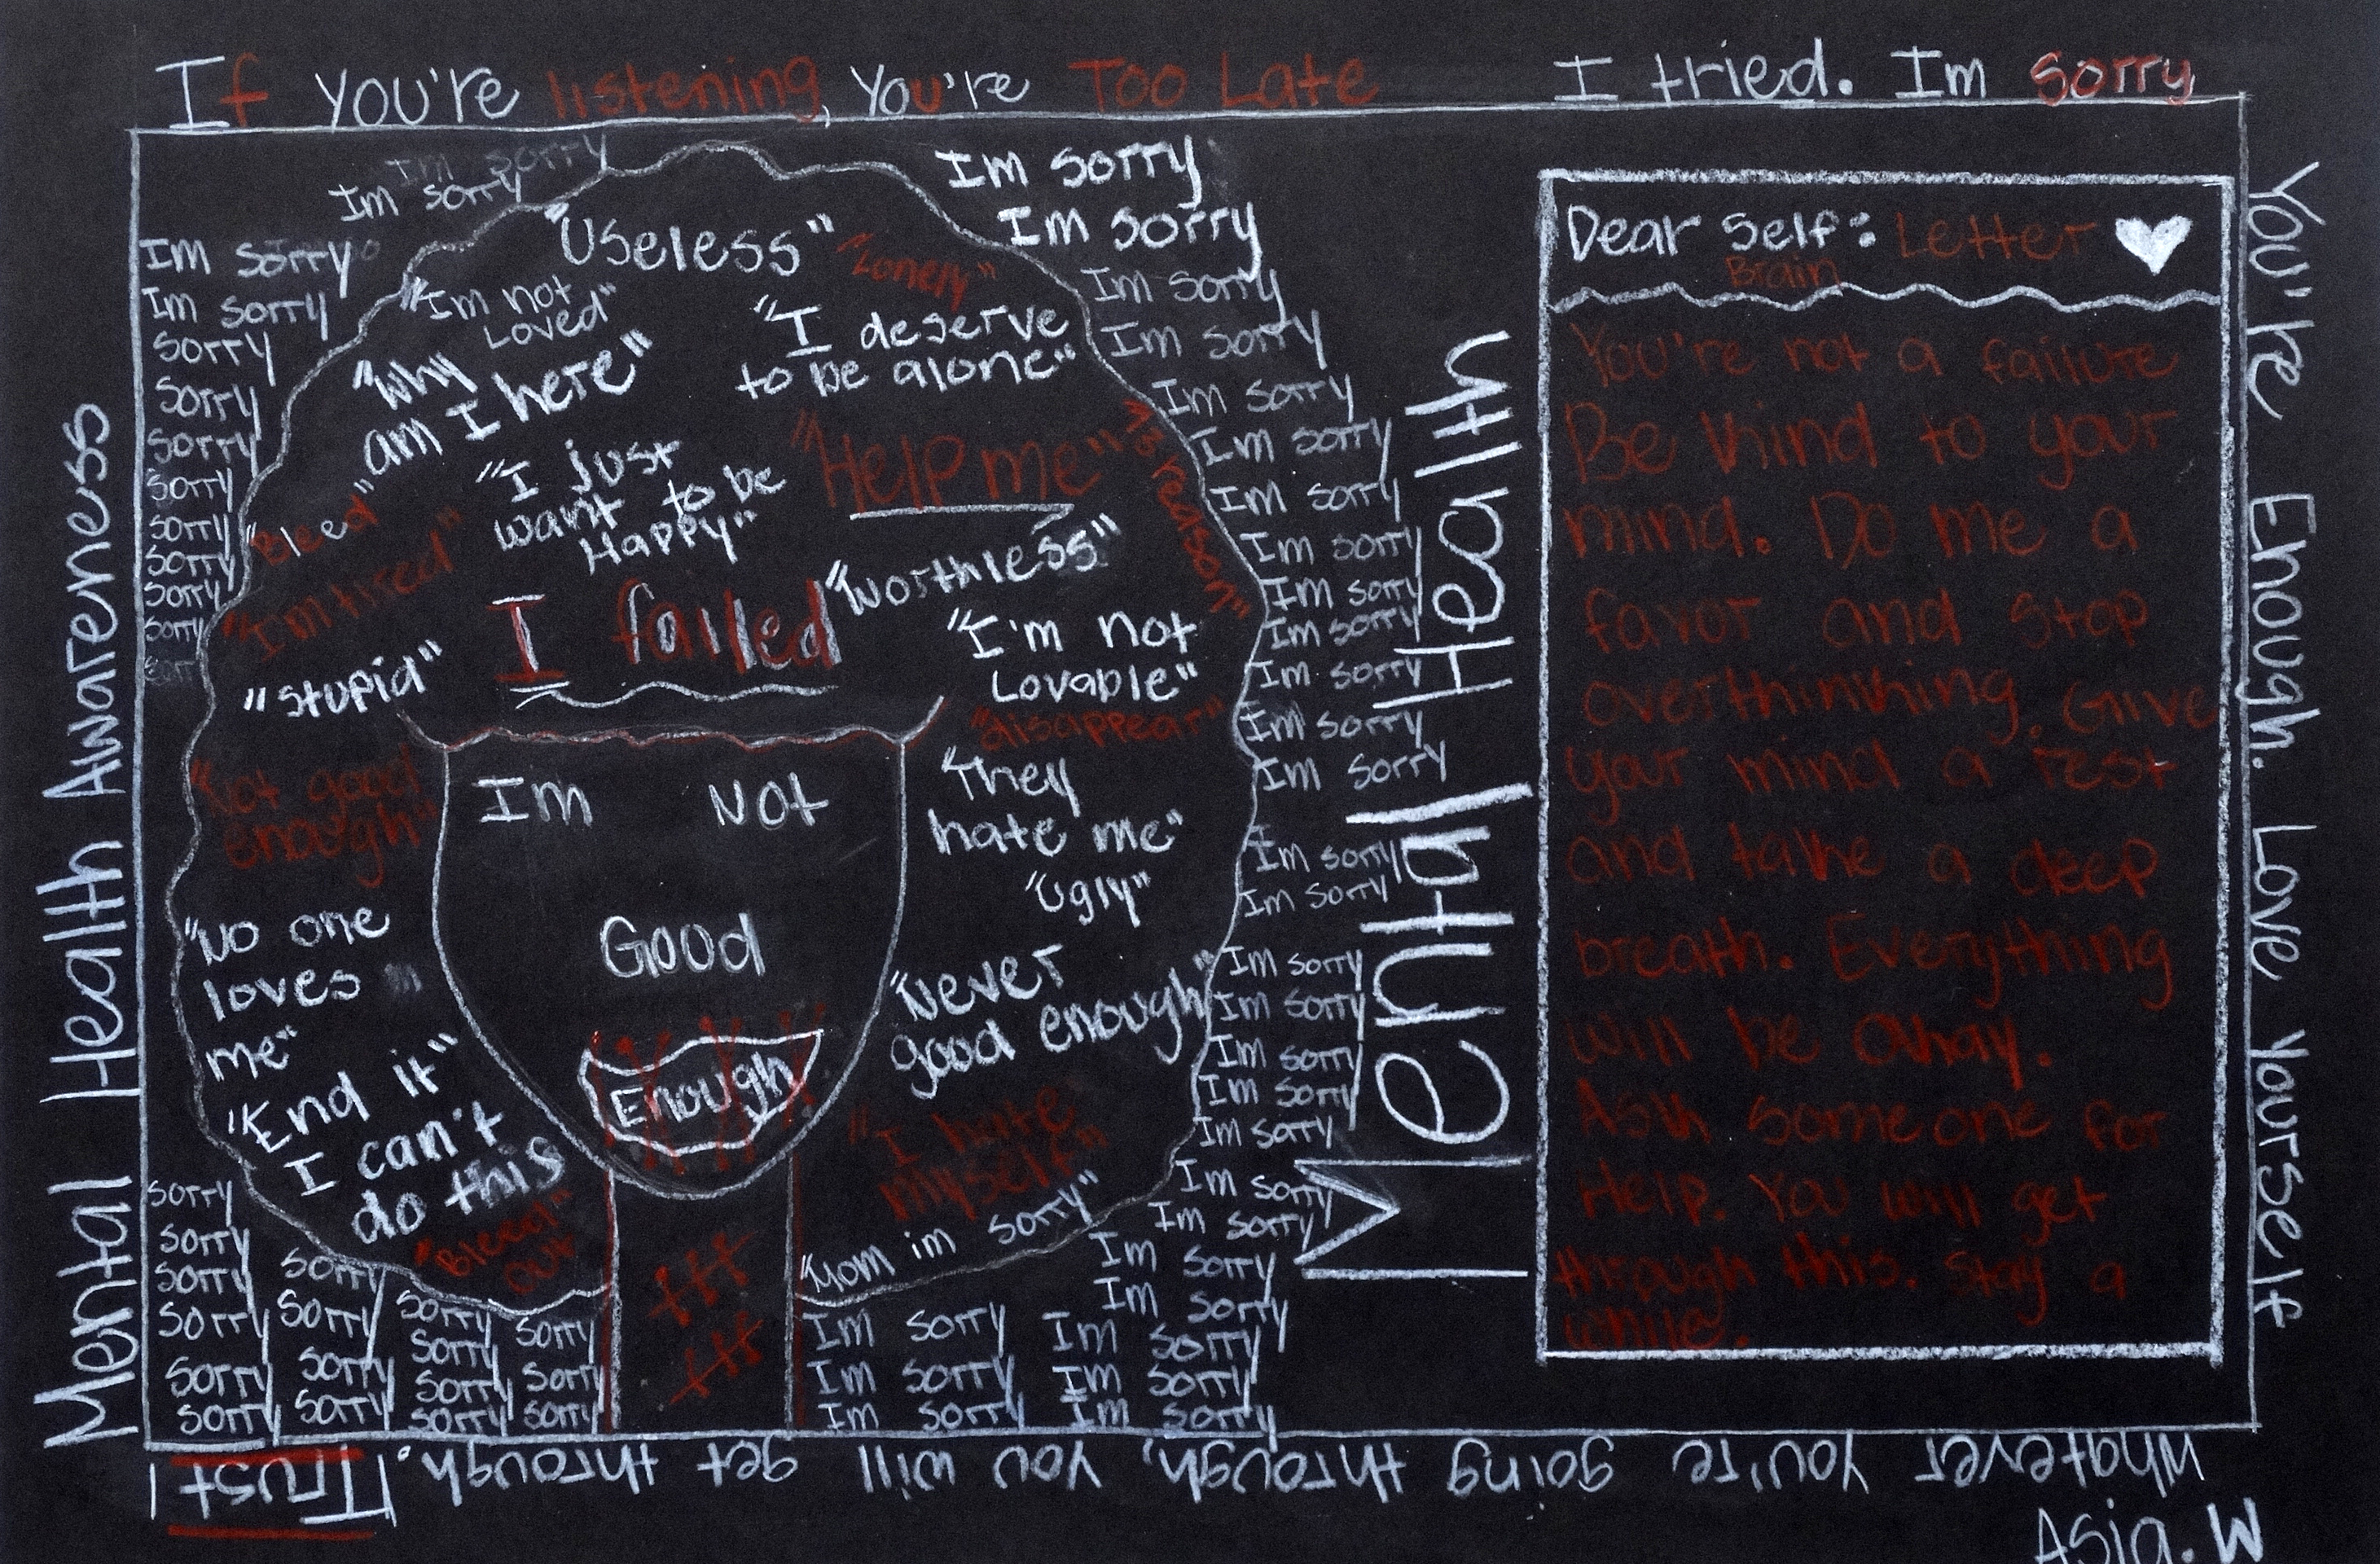 If you're listening, You're Too Late
I tried. Im Sorry
Mental Health Awareness
Im sorry
Im sorry
Im sorry
Im sorry
sorry
sorry
sorry
sorry
sorry
sorry
sorry
sorry
"Useless"
"Lonely"
"Im not
Loved"
"I deserve
to be alone"
"Why
am I here"
"I just
want to be
Happy"
"Help me"
"13 reason"
"Bleed"
"Im tired"
"Worthless"
I failed
"stupid"
"I'm not
Lovable"
"disappear"
"Not good
enough"
Im Not
Good
Enough
"They
hate me"
"Ugly"
"No one
loves
me"
"Never
good enough"
"End it"
I can't
do this
"Bleed
out"
"I hate
myself"
"Mom im sorry"
Im sorry
Im sorry
Im sorry
Im sorry
Im sorry
Im sorry
Im sorry
Im sorry
Im sorry
Im sorry
Im sorry
Im sorry
Im sorry
Im sorry
Im sorry
Im sorry
Im sorry
Im sorry
Im sorry
Im sorry
Im sorry
Im sorry
Im sorry
Im sorry
Im sorry Im sorry
Im sorry Im sorry
Im sorry Im sorry
sorry
sorry
sorry sorry
sorry sorry sorry sorry
sorry sorry sorry sorry
sorry sorry sorry sorry
Mental Health
Dear Self: Letter
Brain
You're not a failure
Be kind to your
mind. Do me a
favor and stop
overthinking. Give
your mind a rest
and take a deep
breath. Everything
will be okay.
Ask someone for
Help. You will get
through this. Stay a
while.
You're Enough. Love Yourself
Whatever you're going through, you will get through. Trust
Asia. W